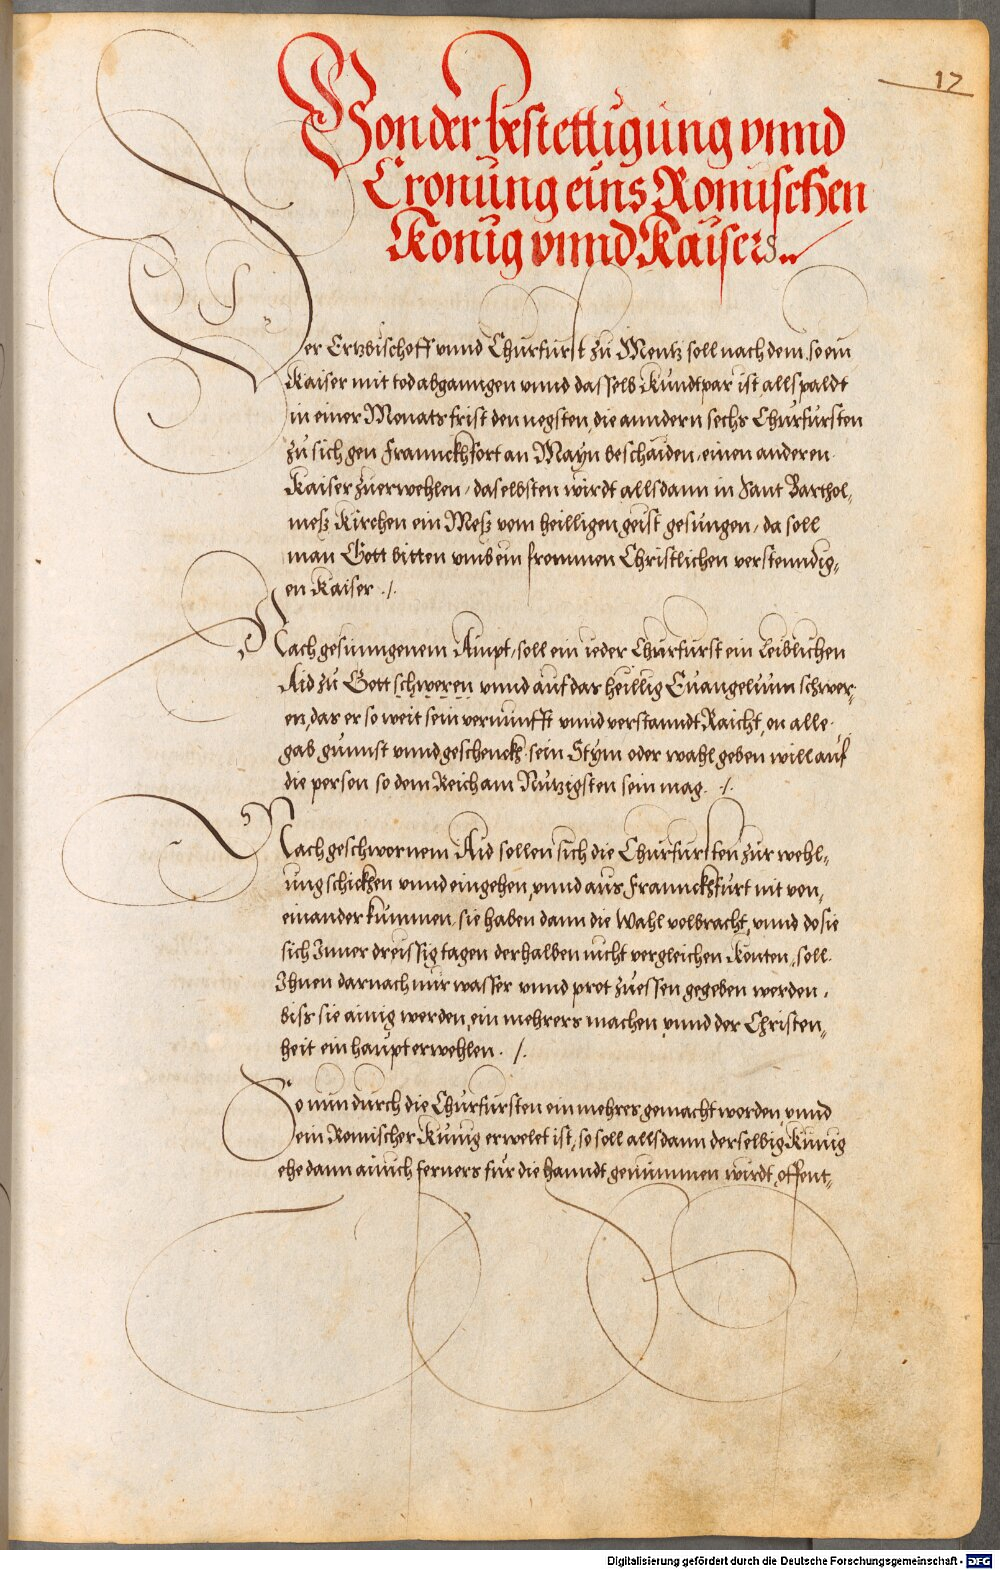 17
Von der bestettigung vnnd
Cronung eins Romischen
Konig vnnd Kaisers ..
Der Ertzbischoff vnnd Churfurst zu Mentz soll nach dem, so ein
Kaiser mit tod abganngen vnnd dasselb Kundtpar ist, allspaldt
in einer Monats frist den negsten, die anndern sechs Churfursten
zu sich gen Frannckhfort an Mayn beschaiden, einen anderen
Kaiser zuerwehlen, daselbsten wirdt allsdann in Sant Barthol-
meß Kirchen ein Meß vom heilligen geist gesungen, da soll
man Gott bitten vmb ein frommen Christlichen verstenndig-
en Kaiser ./.
Nach gesunngenem Ampt, soll ein ieder Churfurst ein Leiblichen
Aid zu Gott schweren vnnd auf das heillig Euangelium schwer-
en, das er so weit sein vernunfft vnnd verstanndt Raicht, on alle
gab gunnst vnnd geschenckh sein Stym oder wahl geben will auf
die person so dem Reich am Nutzigsten sein mag. ./.
Nach geschwornem Aid sollen sich die Churfursten zur wehl-
ung schickhen vnnd eingehen, vnnd aus Franncksfurt nit von-
einander kummen, sie haben dann die Wahl volbracht, vnnd do sie
sich Inner dreissig tagen derhalben nicht vergleichen Konten, soll
Ihnen darnach nur wasser vnnd prot zuessen gegeben werden,
biss sie ainig werden, ein mehrers machen vnnd der Christen-
heit ein haupt erwehlen. ./.
So nun durch die Churfursten ein mehres gemacht worden, vnnd
ein Romischer Kunig erwelet ist, so soll allsdann derselbig Kunig
ehe dann ainich ferners fur die hanndt genummen wirdt, offent-
Digitalisierung gefördert durch die Deutsche Forschungsgemeinschaft - DFG